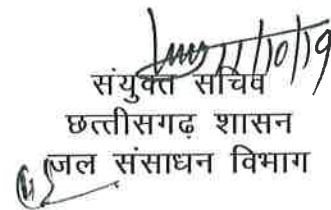 11/10/19
संयुक्त सचिव
छत्तीसगढ़ शासन
जल संसाधन विभाग